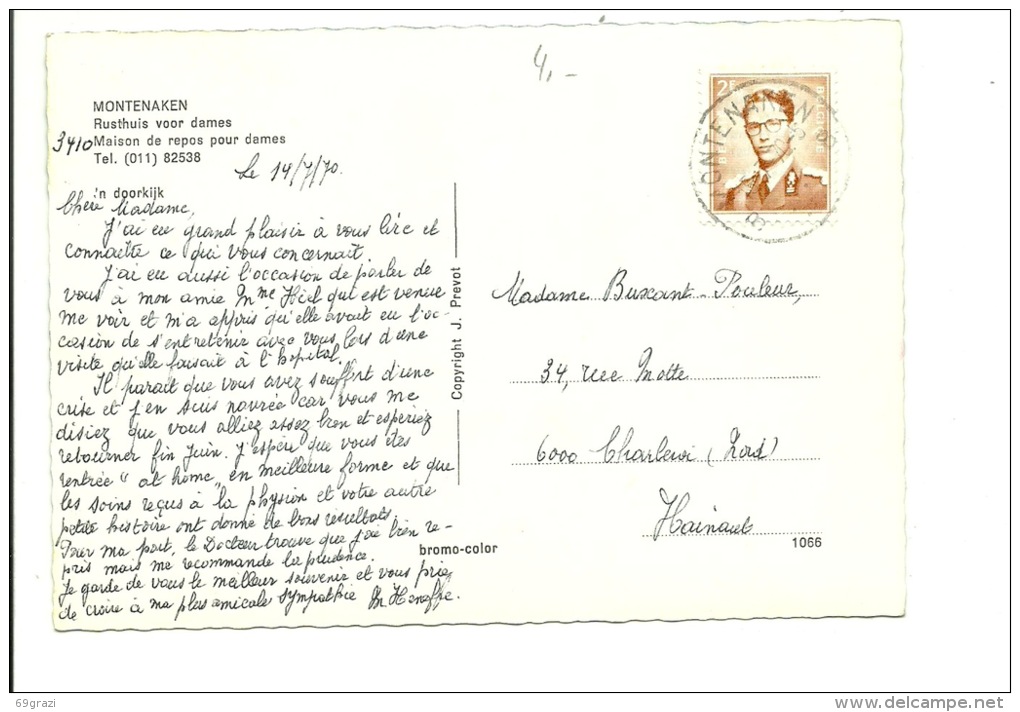 4,-
MONTENAKEN
Rusthuis voor dames
3410 Maison de repos pour dames
Tel. (011) 82538
Le 14/7/70.
'n doorkijk
Chère Madame,
J'ai eu grand plaisir à vous lire et
connaître ce qui vous concernait.
J'ai eu aussi l'occasion de parler de
vous à mon amie Mme Hiel qui est venue
me voir et m'a appris qu'elle avait eu l'oc-
casion de s'entretenir avec vous lors d'une
visite qu'elle faisait à l'hopital.
Il paraît que vous avez souffert d'une
crise et j'en suis navrée car vous me
disiez que vous alliez assez bien et espériez
retourner fin Juin. J'espère que vous êtes
rentrée "at home" en meilleure forme et que
les soins reçus à la physion et votre autre
petite histoire ont donné de bons résultats.
Pour ma part, le Docteur trouve que j'ai bien re-
pris mais me recommande la prudence.
Je garde de vous le meilleur souvenir et vous prie
de croire à ma plus amicale sympathie M.
Copyright J. Prevot
bromo-color
2F
BELGIE
BELGIQUE
MONTENAKEN
B
Madame Buxant-Pouleur,
34, rue Motte
6000 Charleroi (Nord)
Hainaut
1066
69grazi
www.delcampe.net